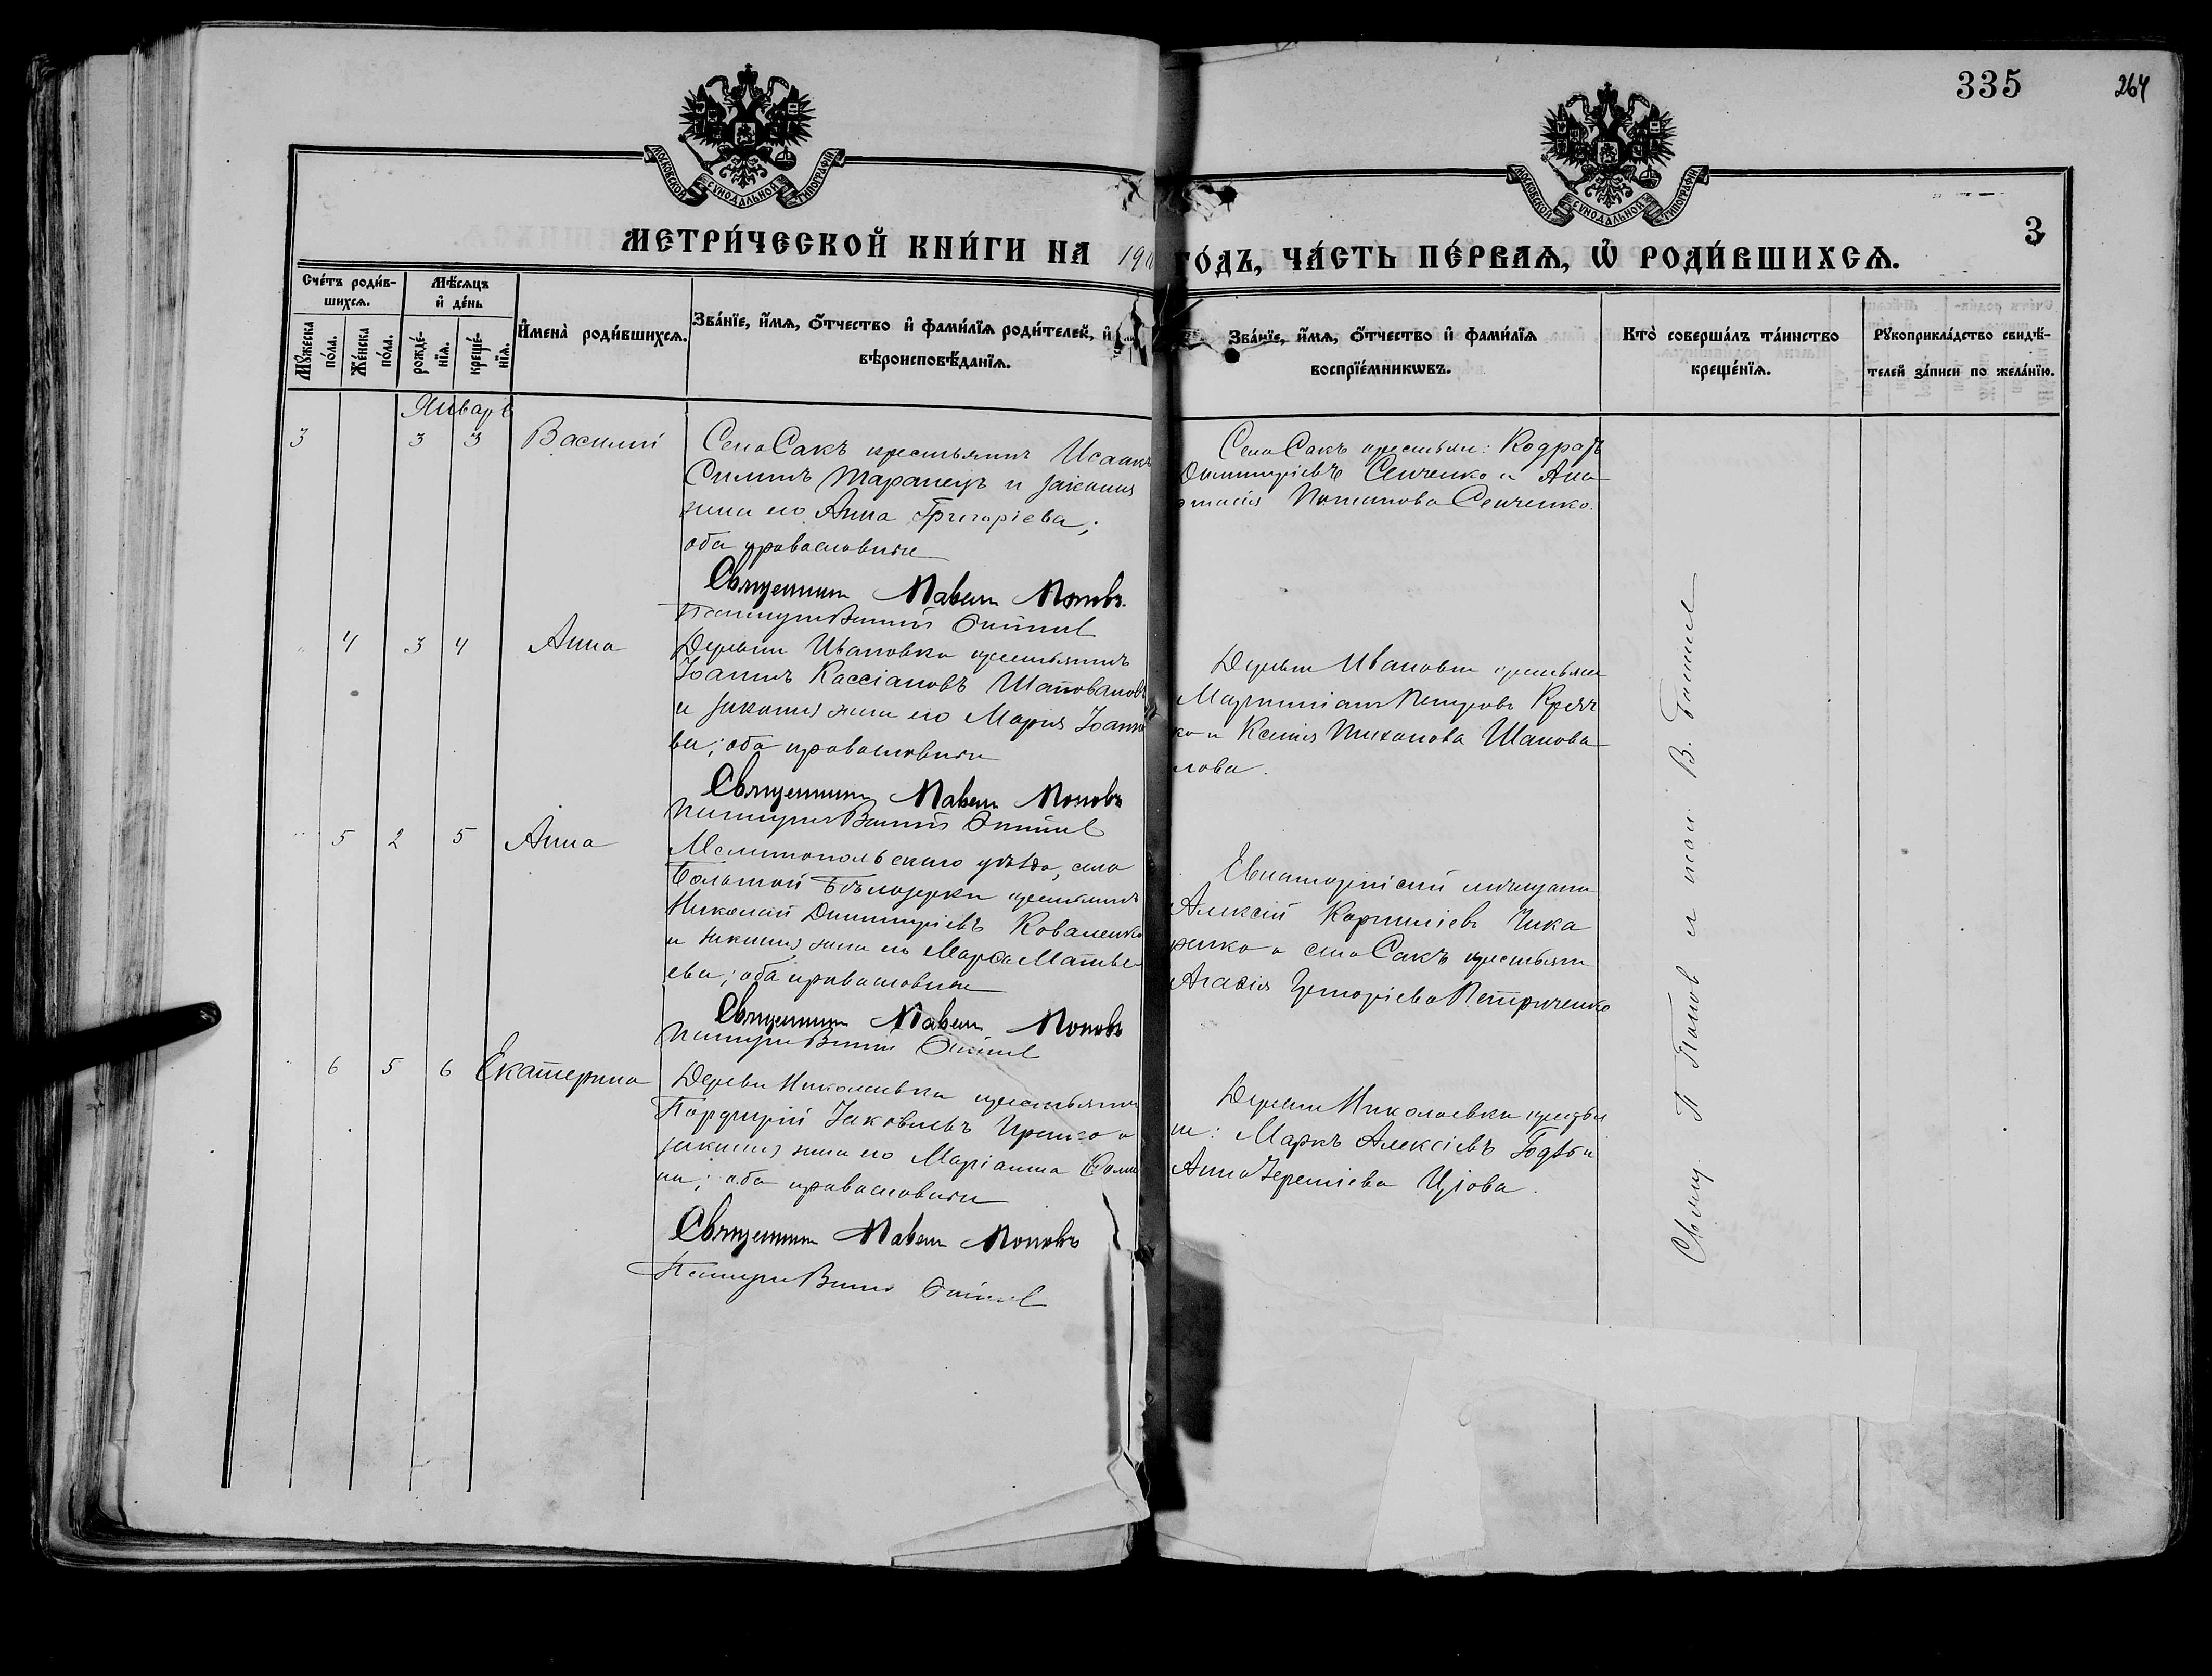 335
264
МОСКОВСКОЙ СѴНОДАЛЬНОЙ ТИПОГРАФІИ
МОСКОВСКОЙ СѴНОДАЛЬНОЙ ТИПОГРАФІИ
3
МЕТРИ́ЧЕСКОЙ КНИ́ГИ НА 190
ГО́ДЪ, ЧА́СТЬ ПЕ́РВАѦ, Ѽ РОДИ́ВШИХСѦ.
Сче́тъ роди́в-
шихсѧ.
Мѣ́сѧцъ
и҆ де́нь
Мꙋ́жеска
по́ла.
Же́нска
по́ла.
рожде́-
нїѧ.
креще́-
нїѧ.
И҆мена̀ роди́вшихсѧ.
Зва́нїе, и҆́мѧ, ѻ҆́тчество и҆ фами́лїѧ роди́телей, и҆
вѣроисповѣ́данїѧ.
Зва́нїе, и҆́мѧ, ѻ҆́тчество и҆ фами́лїѧ
воспрїе́мникѡвъ.
Кто̀ соверша́лъ та́инство
креще́нїѧ.
Рꙋкоприкла́дство свидѣ́-
телей за́писи по жела́нїю.
Январь
3 3 3 Василий
Село Сакъ крестьянинъ Исаакъ
Симинъ Таранецъ и законная
жена его Анна Григоріева;
оба православные
Священникъ Павелъ Поповъ
Село Сакъ крестьяне: Кодратъ
Димитріевъ Сенченко и Ана
стасія Потапова Сенченко.
4 3 4 Анна
Деревни Ивановка крестьянинъ
Іоаннъ Кассіановъ Шаповаловъ
и законная жена его Марія Іоанно
ва; оба православные
Священникъ Павелъ Поповъ
Деревни Ивановки крестьяне
Мартиніанъ Петровъ Кряч
ко и Ксенія Тиханова Шапова
лова.
5 2 5 Анна
Мелитопольскаго уѣзда, села
Большой Бѣлозерки крестьянинъ
Николай Димитріевъ Коваленко
и законная жена его Марѳа Матвѣ
ева; оба православные
Священникъ Павелъ Поповъ
Евпаторійскій мѣщанинъ
Алексій Корниліевъ Чика
ренко и села Сакъ крестьянка
Агаѳія Григоріева Петриченко
6 5 6 Екатерина
Деревни Николаевка крестьянинъ
Порфирій Іаковлевъ
законная жена его Маріанна
на; оба православные
Священникъ Павелъ Поповъ
Деревни Николаевки крестья
не: Маркъ Алексіевъ и
Анна Іереміева
Свящ. П. Попов и псал. В.